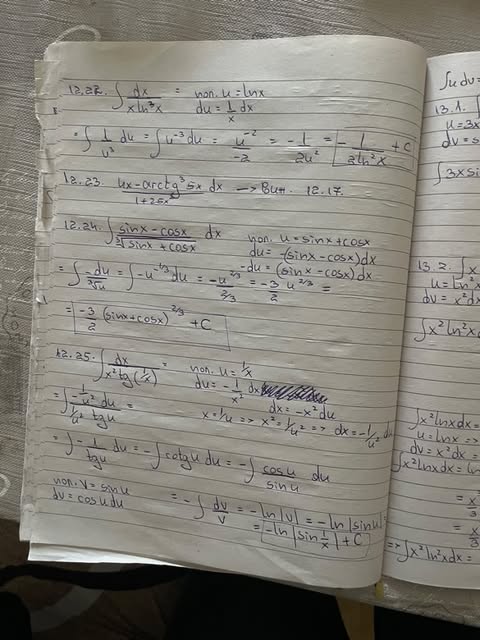 12.22. ∫ dx / x ln³x = пол. u = lnx
du = 1/x dx
= ∫ 1/u³ du = ∫ u⁻³ du = u⁻² / -2 = -1/2u² = -1/2ln²x + C
12.23. 4x - arctg³5x / 1+25x² dx → виж. 12.17.
12.24. ∫ sinx - cosx / ³√sinx + cosx dx пол. u = sinx + cosx
du = -(sinx - cosx)dx
-du = (sinx - cosx)dx
= ∫ -du / ³√u = ∫ -u^-1/3 du = -u^2/3 / 2/3 = -3/2 u^2/3 =
= -3/2 (sinx + cosx)^2/3 + C
12.25. ∫ dx / x² tg(1/x) = пол. u = 1/x
du = -1/x² dx
dx = -x² du
x = 1/u => x² = 1/u² => dx = -1/u² du
= ∫ -1/u² du / 1/u² tgu =
= ∫ -1/tgu du = -∫ cotgu du = -∫ cosu / sinu du
пол. v = sinu
dv = cosu du
= -∫ dv/v = -ln|v| = -ln|sinu| =
= -ln|sin 1/x| + C
∫u dv =
13.1. ∫
u = 3x
∫3x sin
13.2. ∫x
u = ln²x
dv = x²dx
∫x²ln²x
∫x²lnx dx =
u = lnx =>
dv = x²dx =
∫x²lnx dx = ln
= x³/3
= x³/3
=> ∫x²ln²x dx =